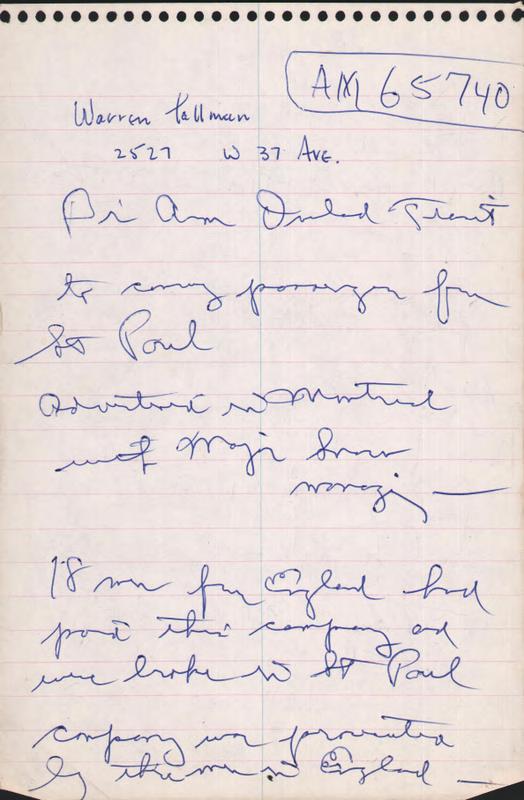 AM 65740
Warren Tallman
2527 W 37 Ave.
Br Am Overland Transit
to carry passengers from
St Paul
Advertised in Montreal
with Major Snow
managing —
18 men from England had
paid this company and
were broke in St Paul
company was prosecuted
by these men in England —